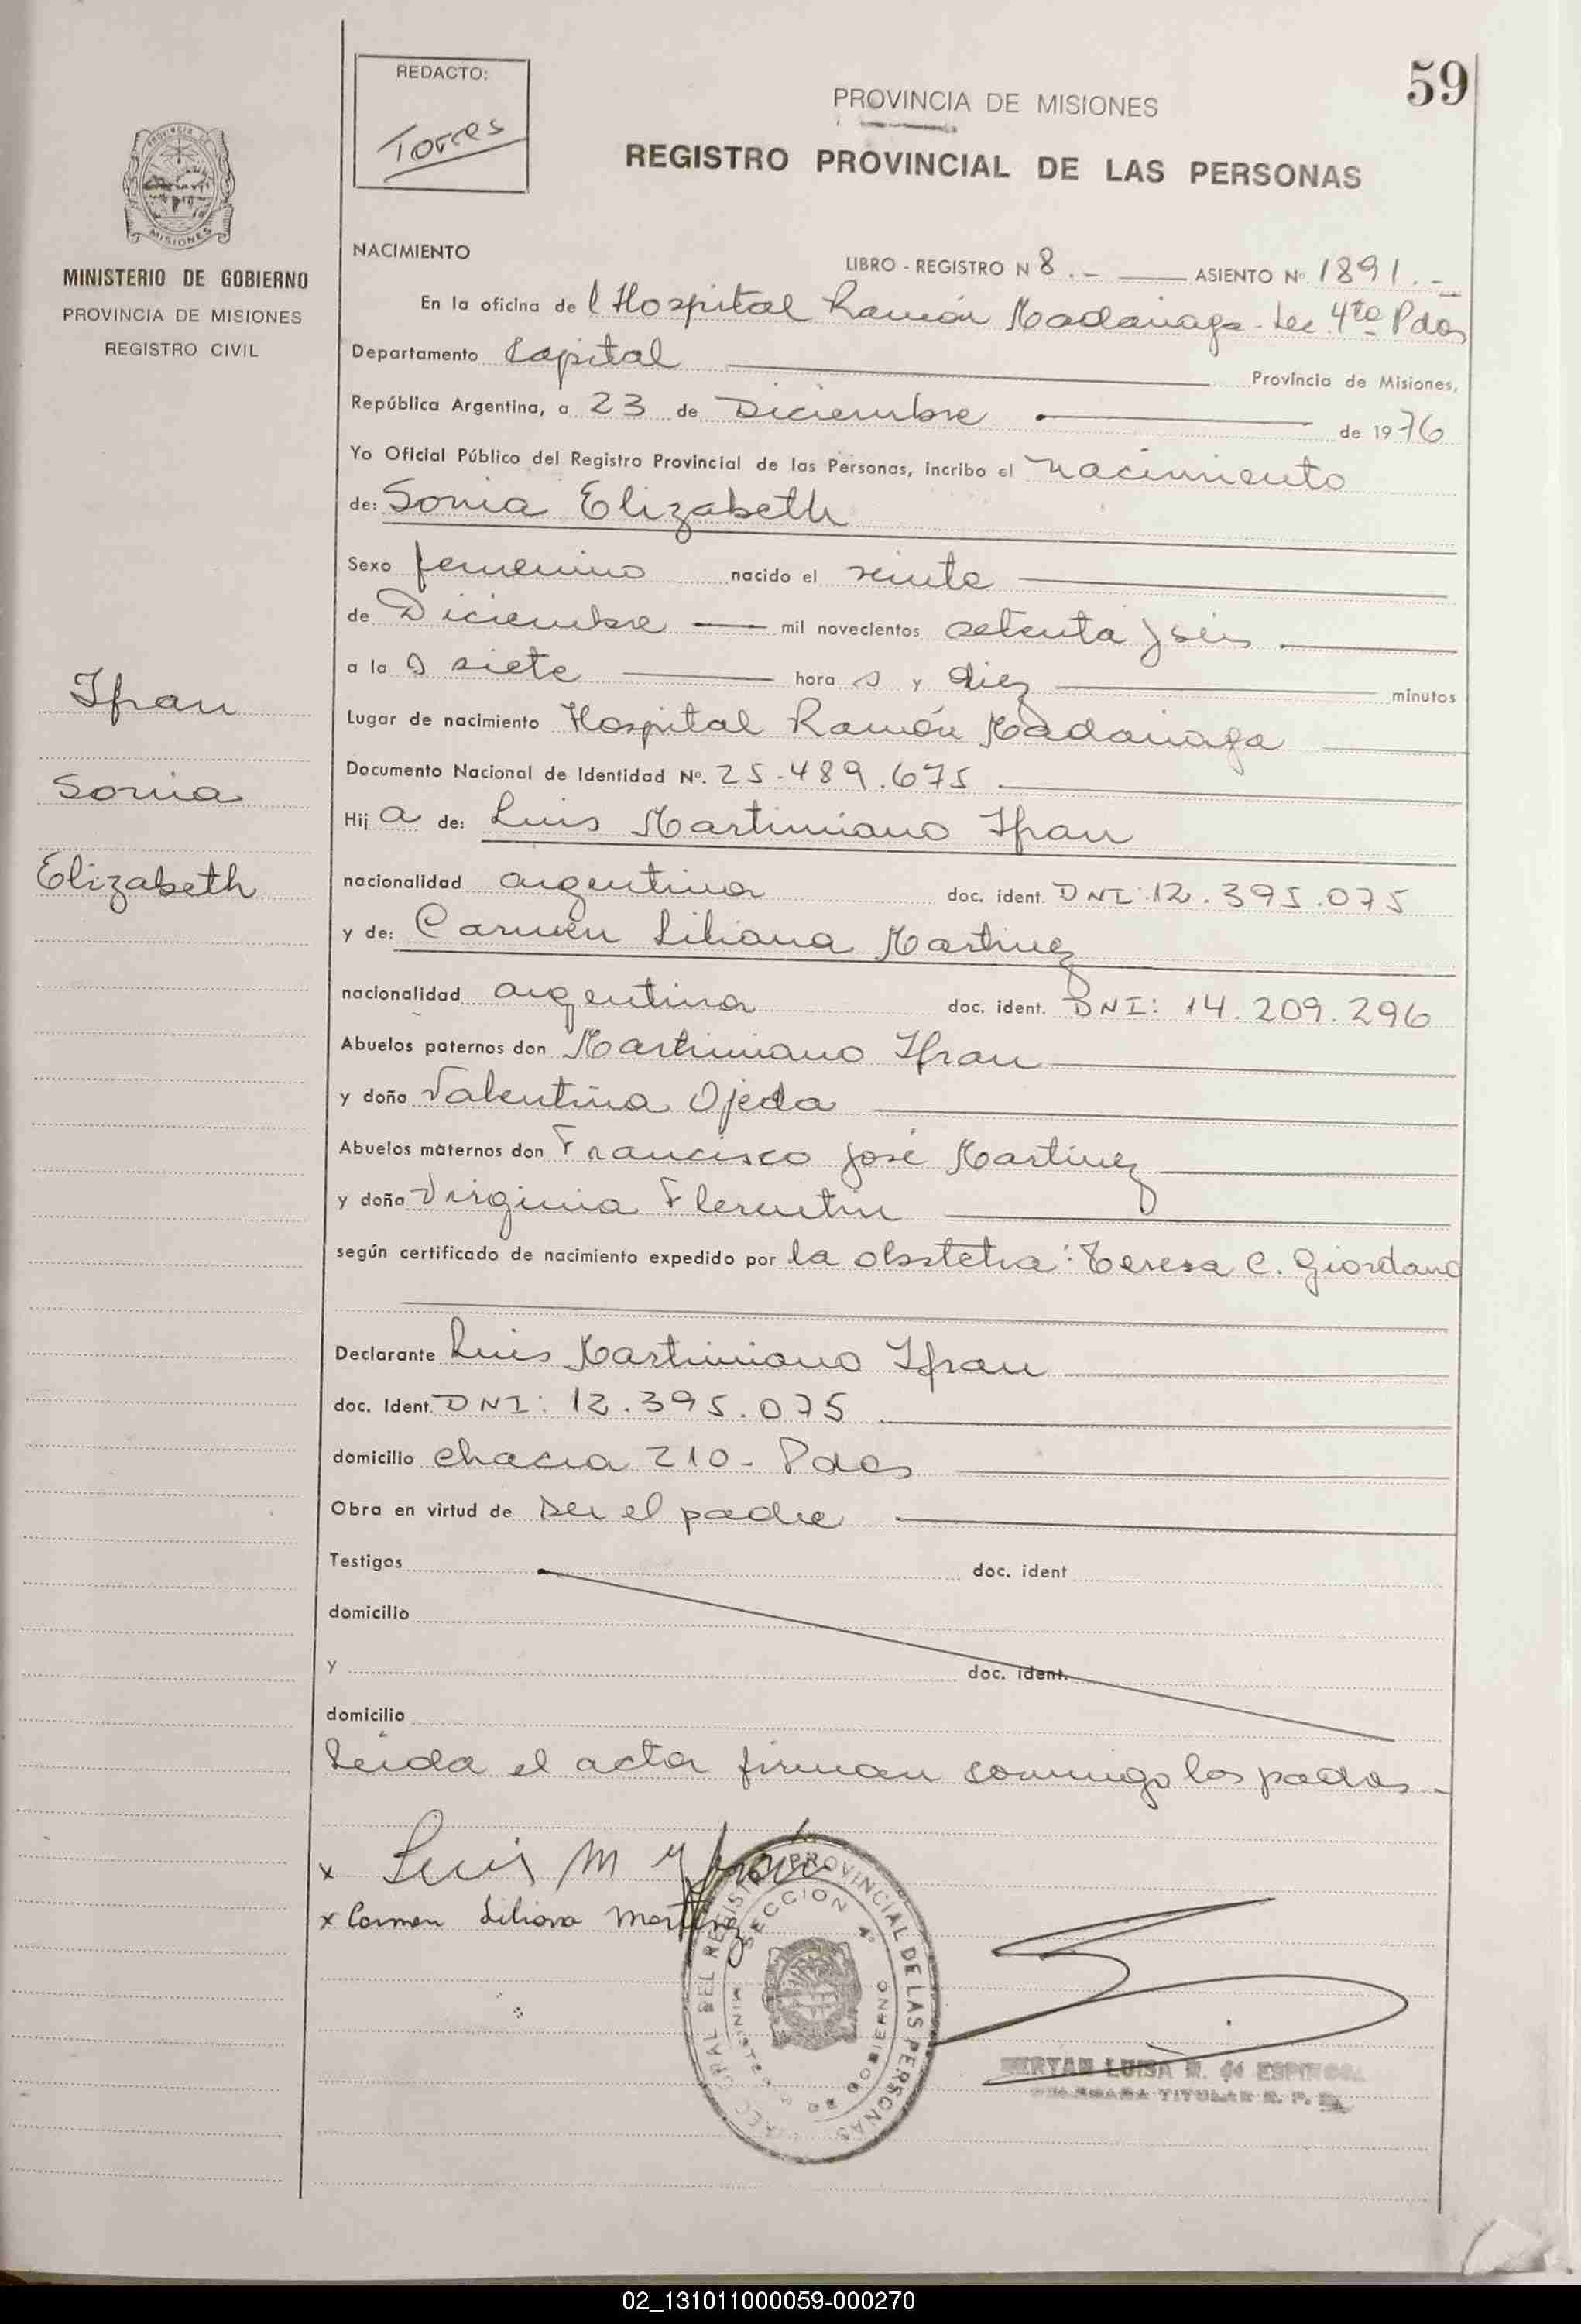 59
REDACTO:
Torres
PROVINCIA DE MISIONES
REGISTRO PROVINCIAL DE LAS PERSONAS
MISIONES
MINISTERIO DE GOBIERNO
PROVINCIA DE MISIONES
REGISTRO CIVIL
NACIMIENTO
LIBRO - REGISTRO N 8.- ASIENTO Nº 1891.-
En la oficina del Hospital Ramón Madariaga - Sec 4ta Pdas
Departamento Capital Provincia de Misiones,
República Argentina, a 23 de Diciembre de 1976
Yo Oficial Público del Registro Provincial de las Personas, incribo el nacimiento
de: Sonia Elizabeth
Sexo femenino nacido el veinte
de Diciembre mil novecientos setenta y seis
a la s siete hora s y diez minutos
Lugar de nacimiento Hospital Ramón Madariaga
Documento Nacional de Identidad Nº. 25.489.675
Hij a de: Luis Martiniano Ifran
nacionalidad argentina doc. ident. DNI: 12.395.075
y de: Carmen Liliana Martinez
nacionalidad argentina doc. ident. DNI: 14.209.296
Abuelos paternos don Martiniano Ifran
y doña Valentina Ojeda
Abuelos maternos don Francisco José Martinez
y doña Virginia Florentin
según certificado de nacimiento expedido por la obstetra: Teresa C. Giordano
Declarante Luis Martiniano Ifran
doc. Ident. DNI: 12.395.075
domicilio chacra 210 - Pdas
Obra en virtud de ser el padre
Testigos doc. ident
domicilio
y doc. ident.
domicilio
Leida el acta firman conmigo los padres.-
x Luis M Yfran
x Carmen Liliana Martinez
Ifran
Sonia
Elizabeth
GRAL DEL REGISTRO PROVINCIAL DE LAS PERSONAS
SECCION 4º
MINISTERIO DE GOBIERNO
LUISA R. de ESPINOSA
TITULAR R. P. P.
02_131011000059-000270